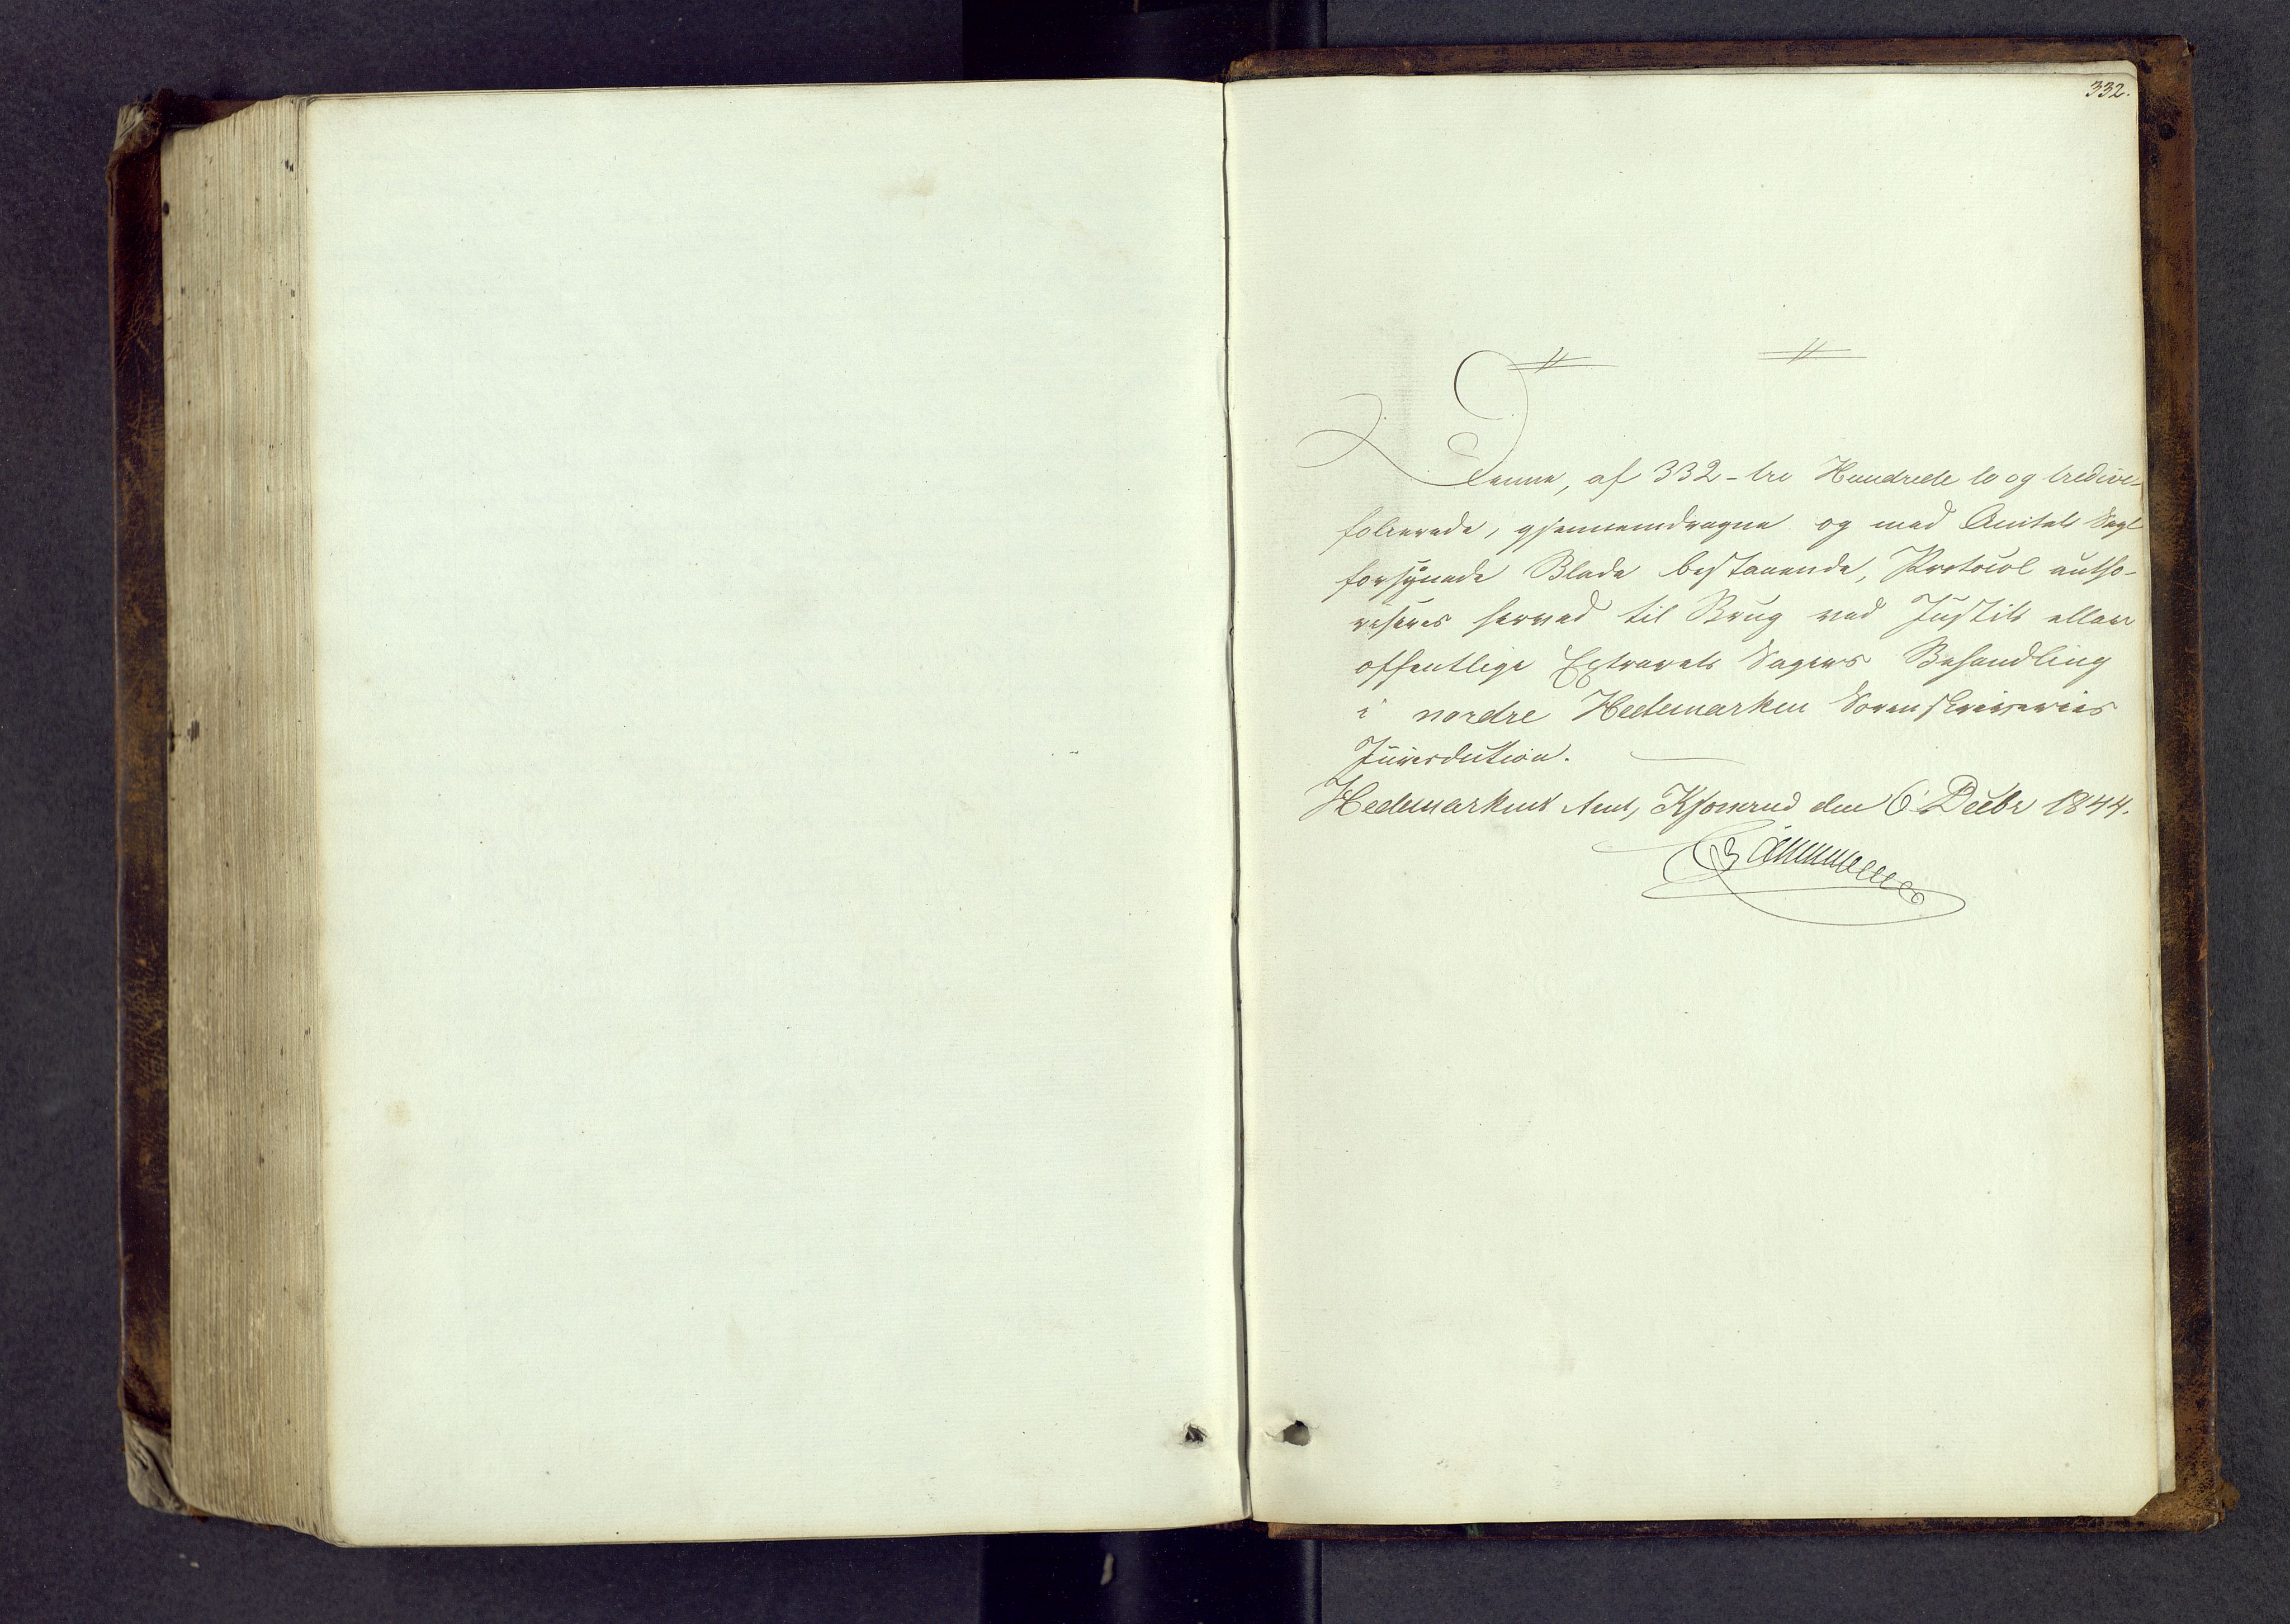 332.
Denne, af 332 - tre Hundrede to og tredive -
folierede, gjennemdragne og med Amtets Segl
forsynede Blade bestaaende, Protocol autho-
riseres herved til Brug ved Justits eller
offentlige Extrarets Sagers Behandling
i nordre Hedemarken Sorenskriveries
Jurisdiction.
Hedemarkens Amt, den 6 Decbr 1844.